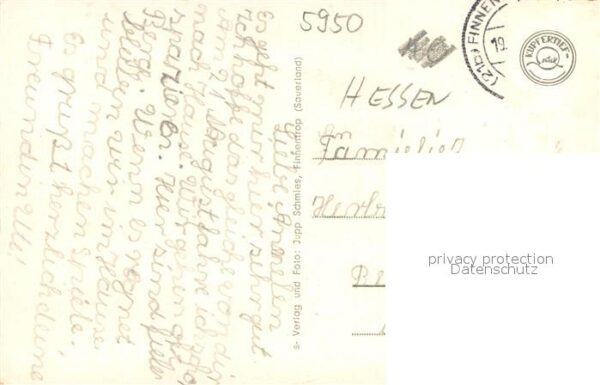 5950
HESSEN
(21b) FINNEN
19.
KUPFERTIEF-
An
Familie
privacy protection
Datenschutz
s- Verlag und Foto: Jupp Schmies, Finnentrop (Sauerland)
Es geht mir hier sehr gut.
Ich hoffe dasgleiche von dir
August fahre ich
nach Haus. Wir gehen oft
spazieren. Hier sind viele
Berge. Wenn es regnet
bleiben wir im Hause
und machen Spiele.
Es grüßt herzlich deine
Freundin